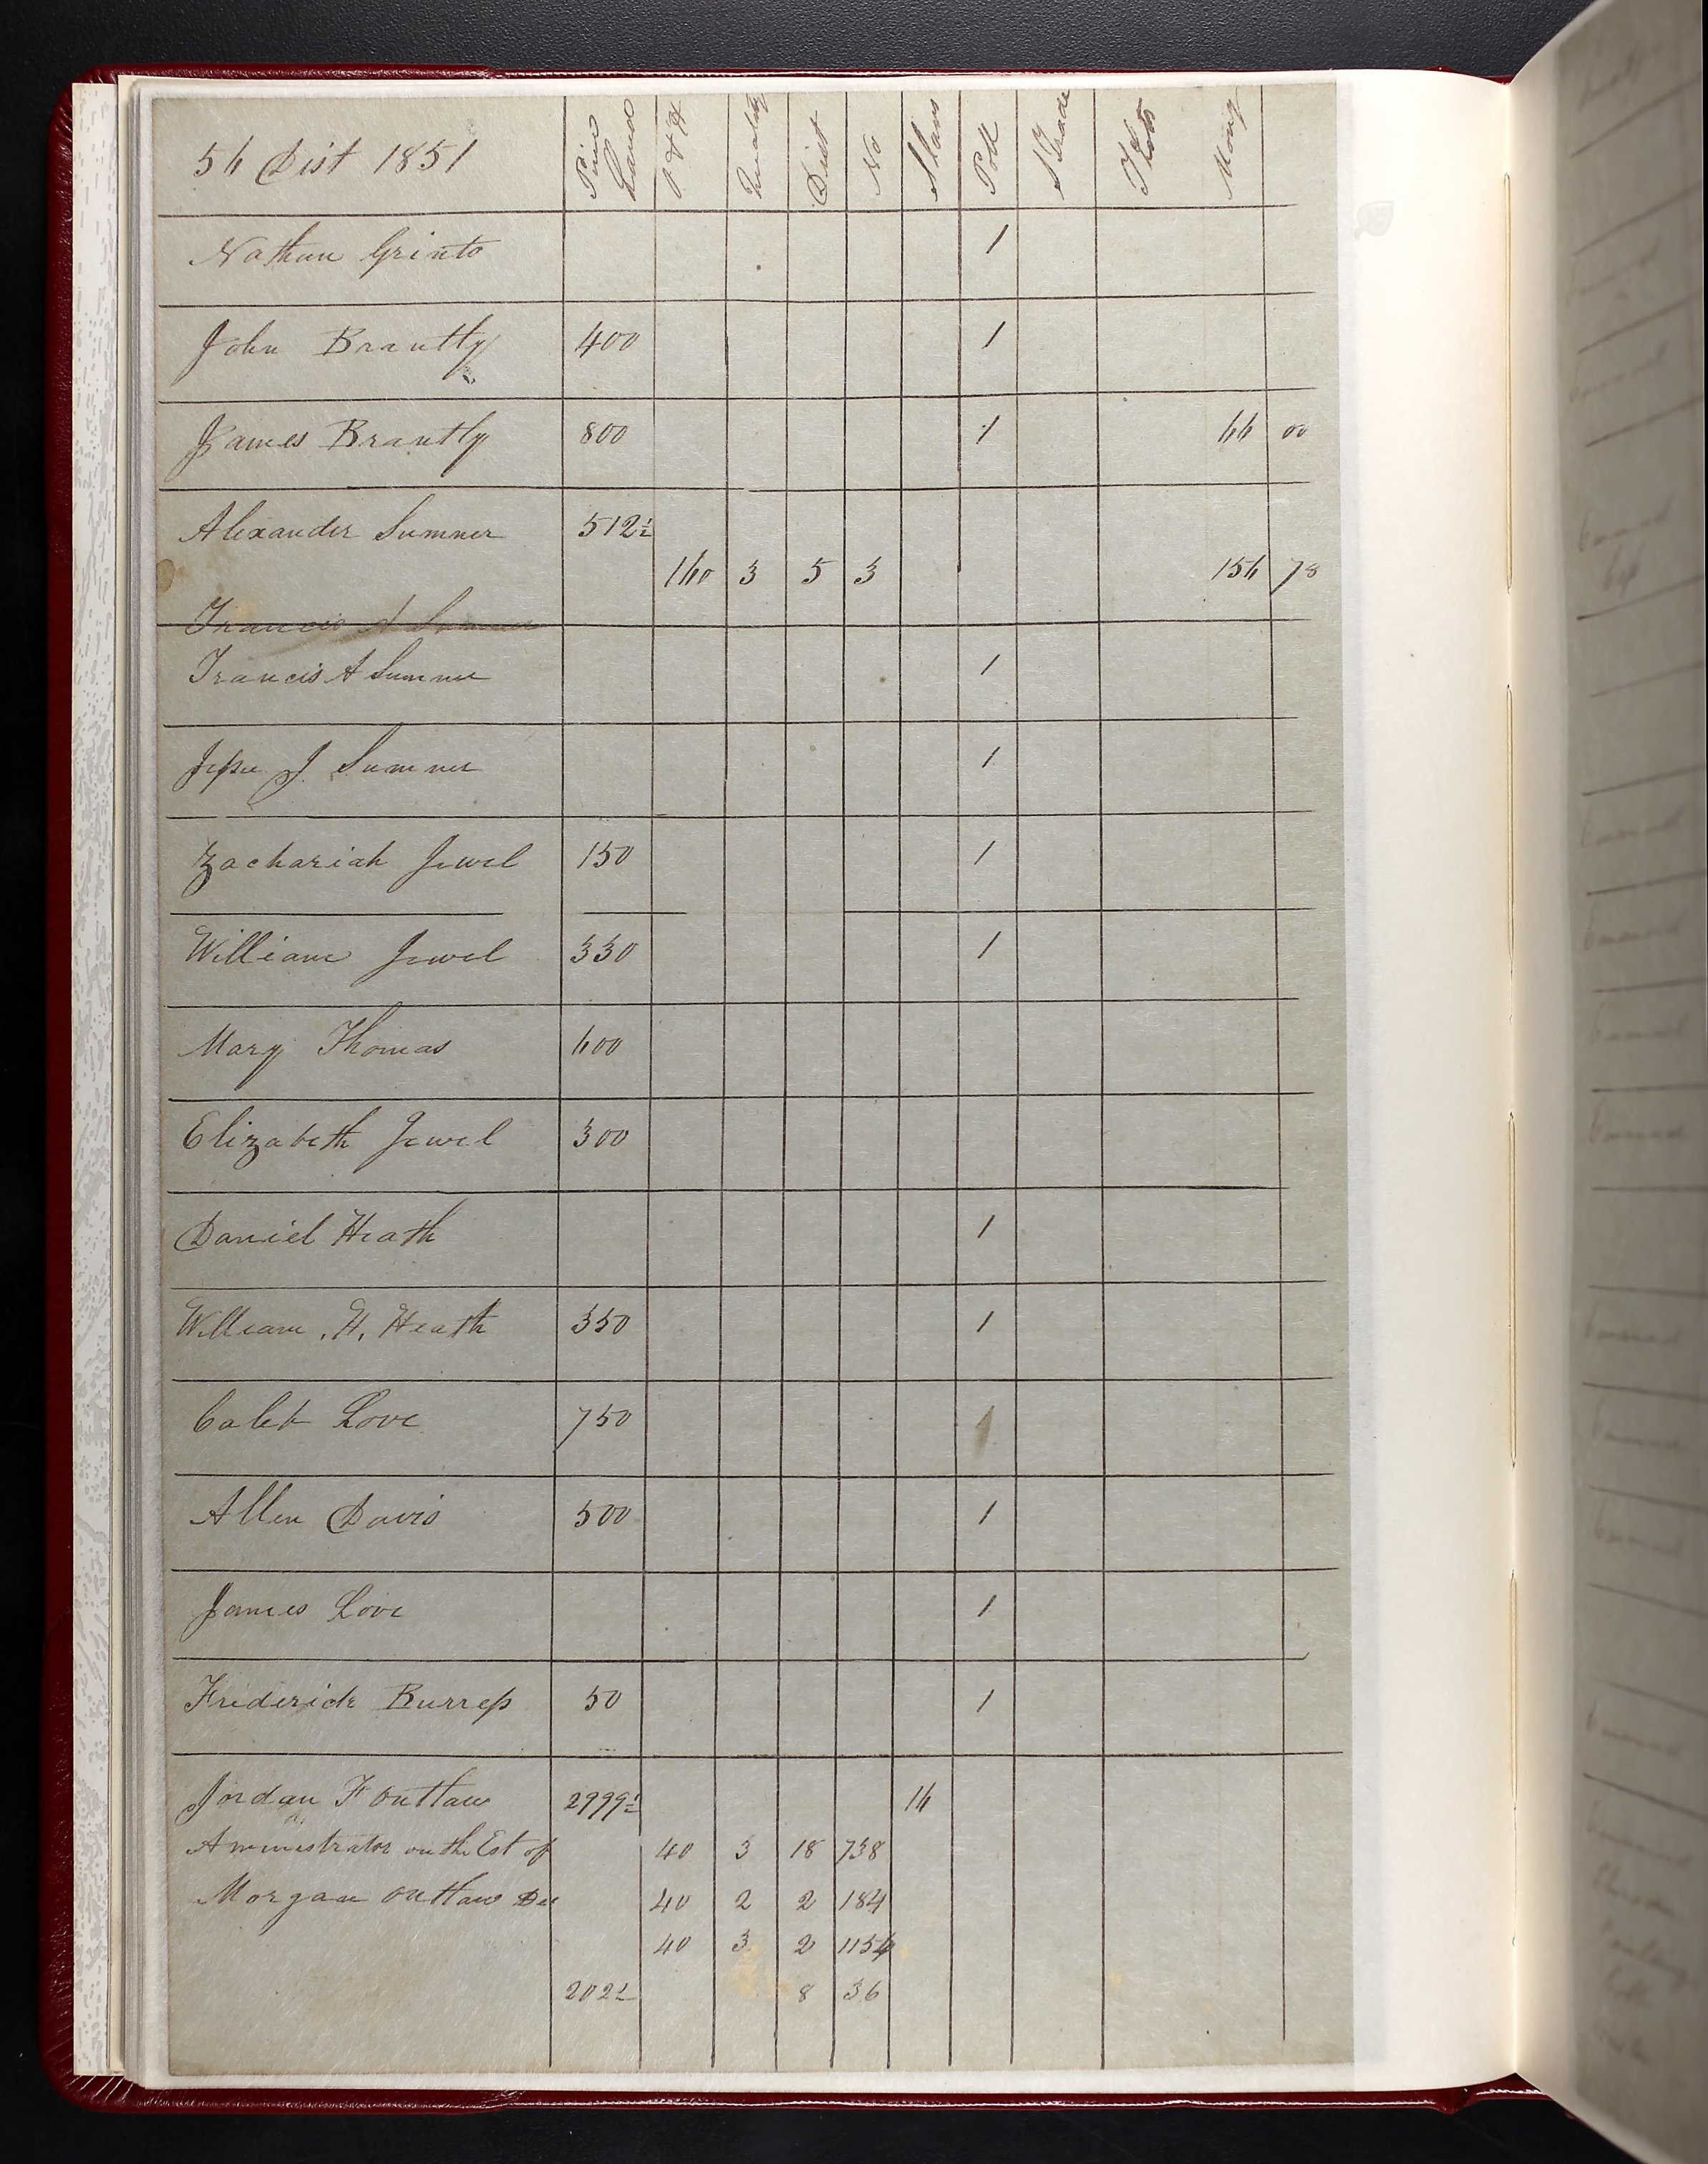 56 Dist 1851 Pine Land O & H Quality Dist No Slaves Poll S Trade T Lots Mony
Nathan Grinto 1
John Brantly 400 1
James Brantly 800 1 66 00
Alexander Sumner 512½
160 3 5 3 156 78
Francis A Sumner
Francis A Sumner 1
Jesse J. Sumner 1
Zachariah Jewel 150 1
William Jewel 330 1
Mary Thomas 600
Elizabeth Jewel 300
Daniel Heath 1
William . H. Heath 350 1
Caleb Love 750 1
Allen Davis 500 1
James Love 1
Frederick Burress 50 1
Jordan F Outlaw 2999½ 16
Aministrator on the Est of 40 3 18 738
Morgan Outlaw De 40 2 2 184
40 3 2 1154
202½ 8 36